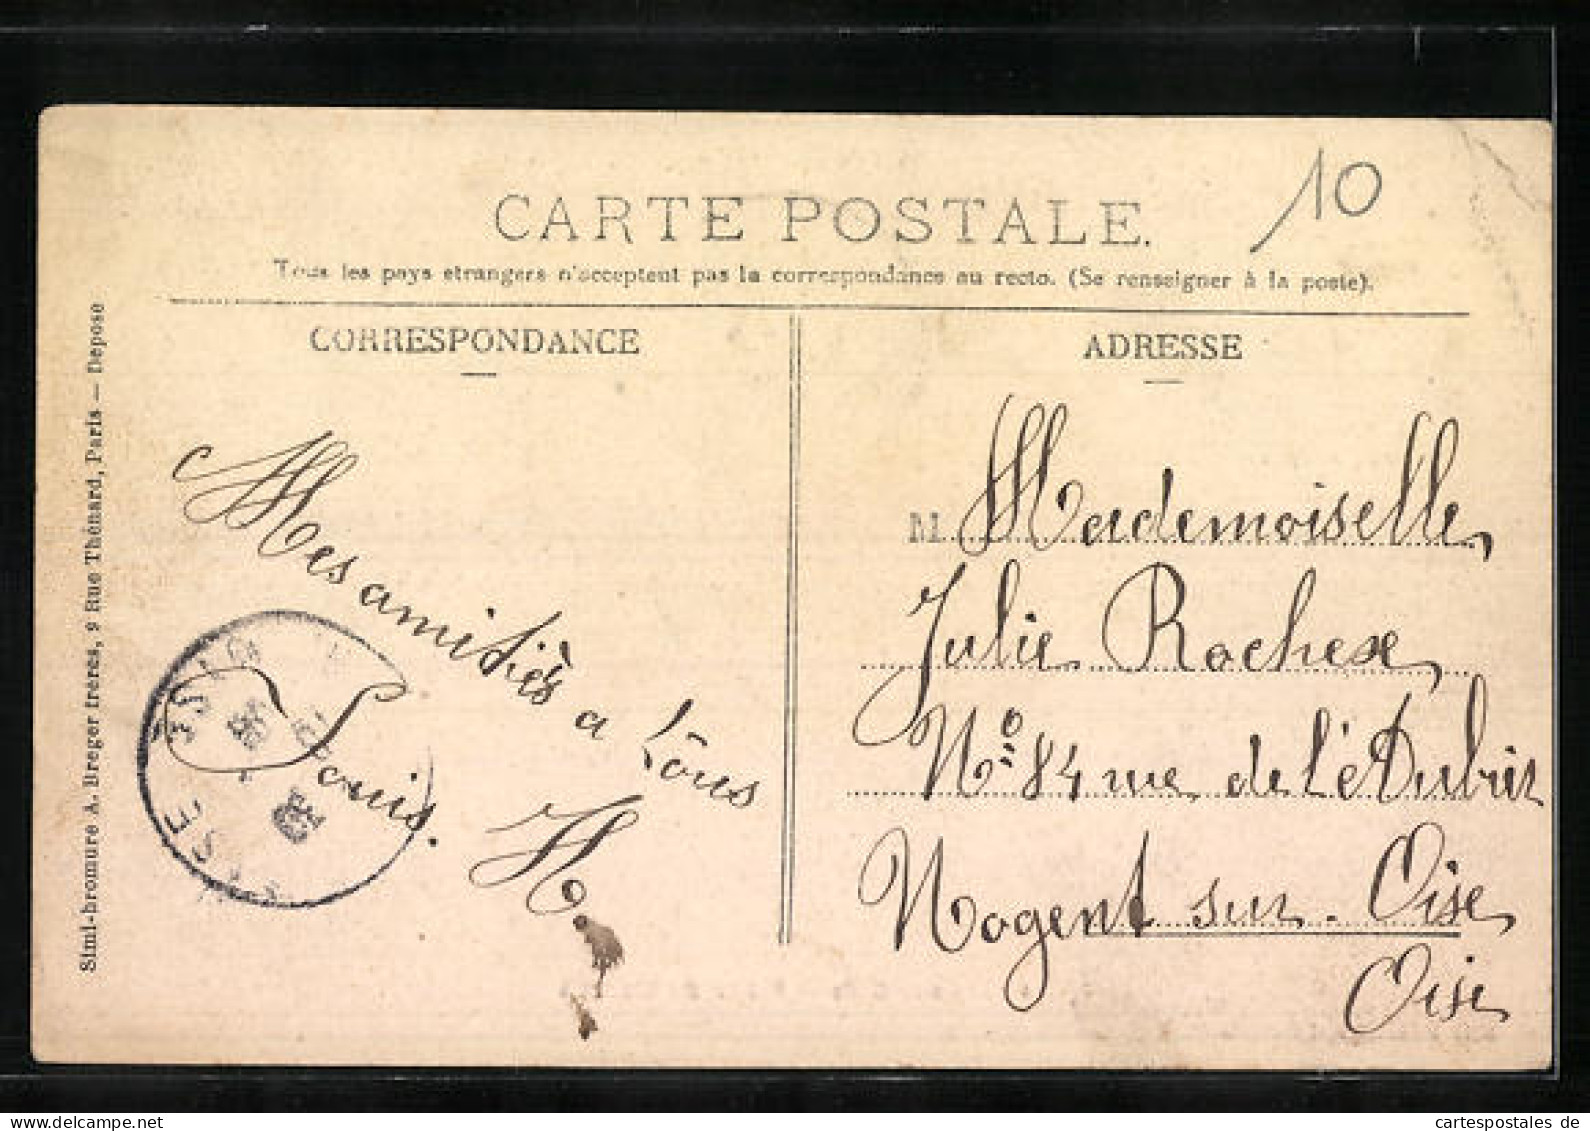 10
CARTE POSTALE.
Tous les pays etrangers n'acceptent pas la correspondance au recto. (Se renseigner à la poste).
CORRESPONDANCE
Mes amitiés a Tous
H.
Louis.
ADRESSE
M. Mademoiselle
Julie
N° 84 rue de l'
Nogent sur Oise
Oise
Simi-bromure A. Breger freres, 9 Rue Thénard, Paris — Depose
cartespostales de